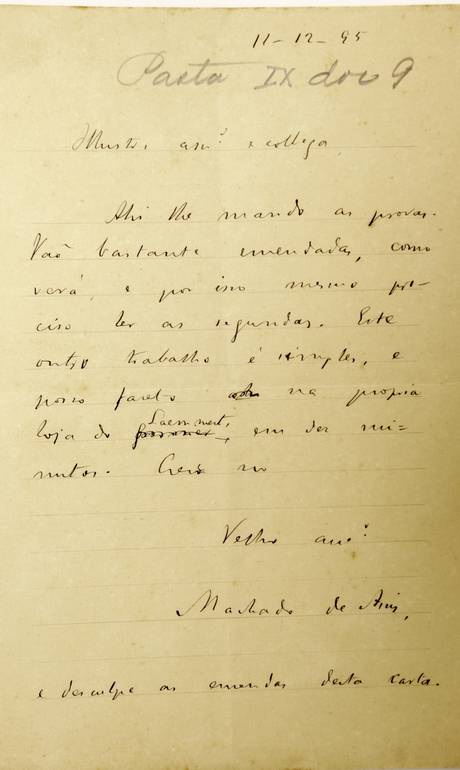 11-12-95
Pasta IX doc 9
Illustre amº e collega,
Ahi lhe mando as provas.
Vaõ bastante emendadas, como
verá, e por isso mesmo pre-
ciso ler as segundas. Este
outro trabalho é simples, e
posso fazel-o na propria
Laemmert,
loja do em dez mi-
nutos. Creia no
Velho amº
Machado de Assis,
e desculpe as emendas desta carta.